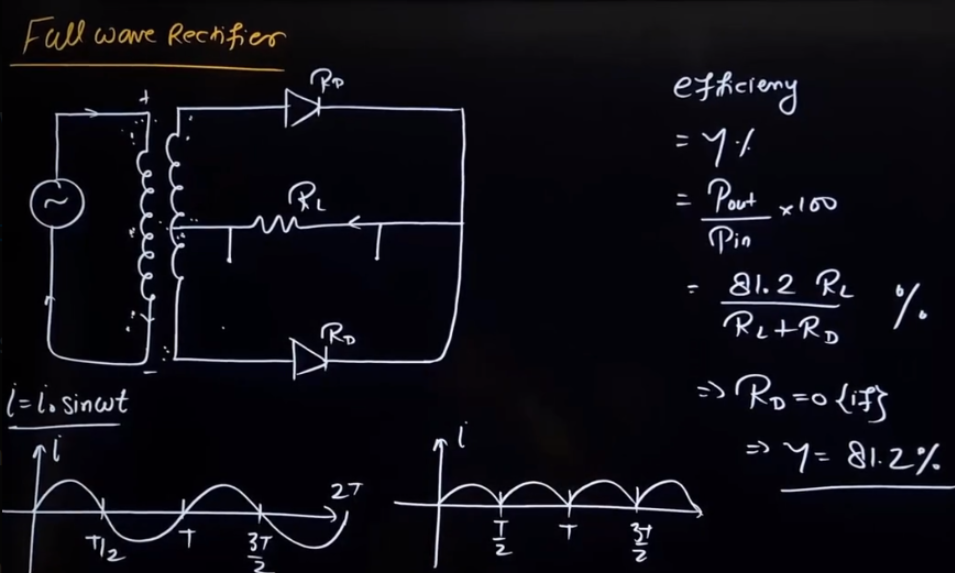 Full wave Rectifier
R_D
+
~
R_L
R_D
-
i = i₀ sinωt
i
T/2
T
3T/2
2T
i
T/2
T
3T/2
efficieny
= η%
= Pout/Pin × 100
= 81.2 R_L / R_L + R_D %
=> R_D = 0 {if}
=> η = 81.2%